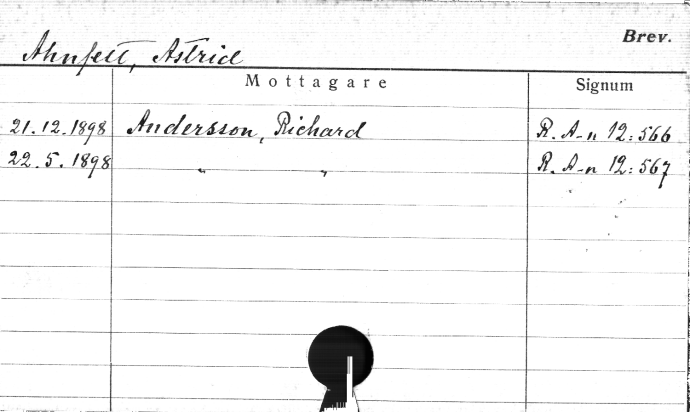 Brev.
Ahnfelt, Astrid
Mottagare Signum
21.12.1898 Andersson, Richard R. A-n 12:566
22.5.1898 " " R. A-n 12:567